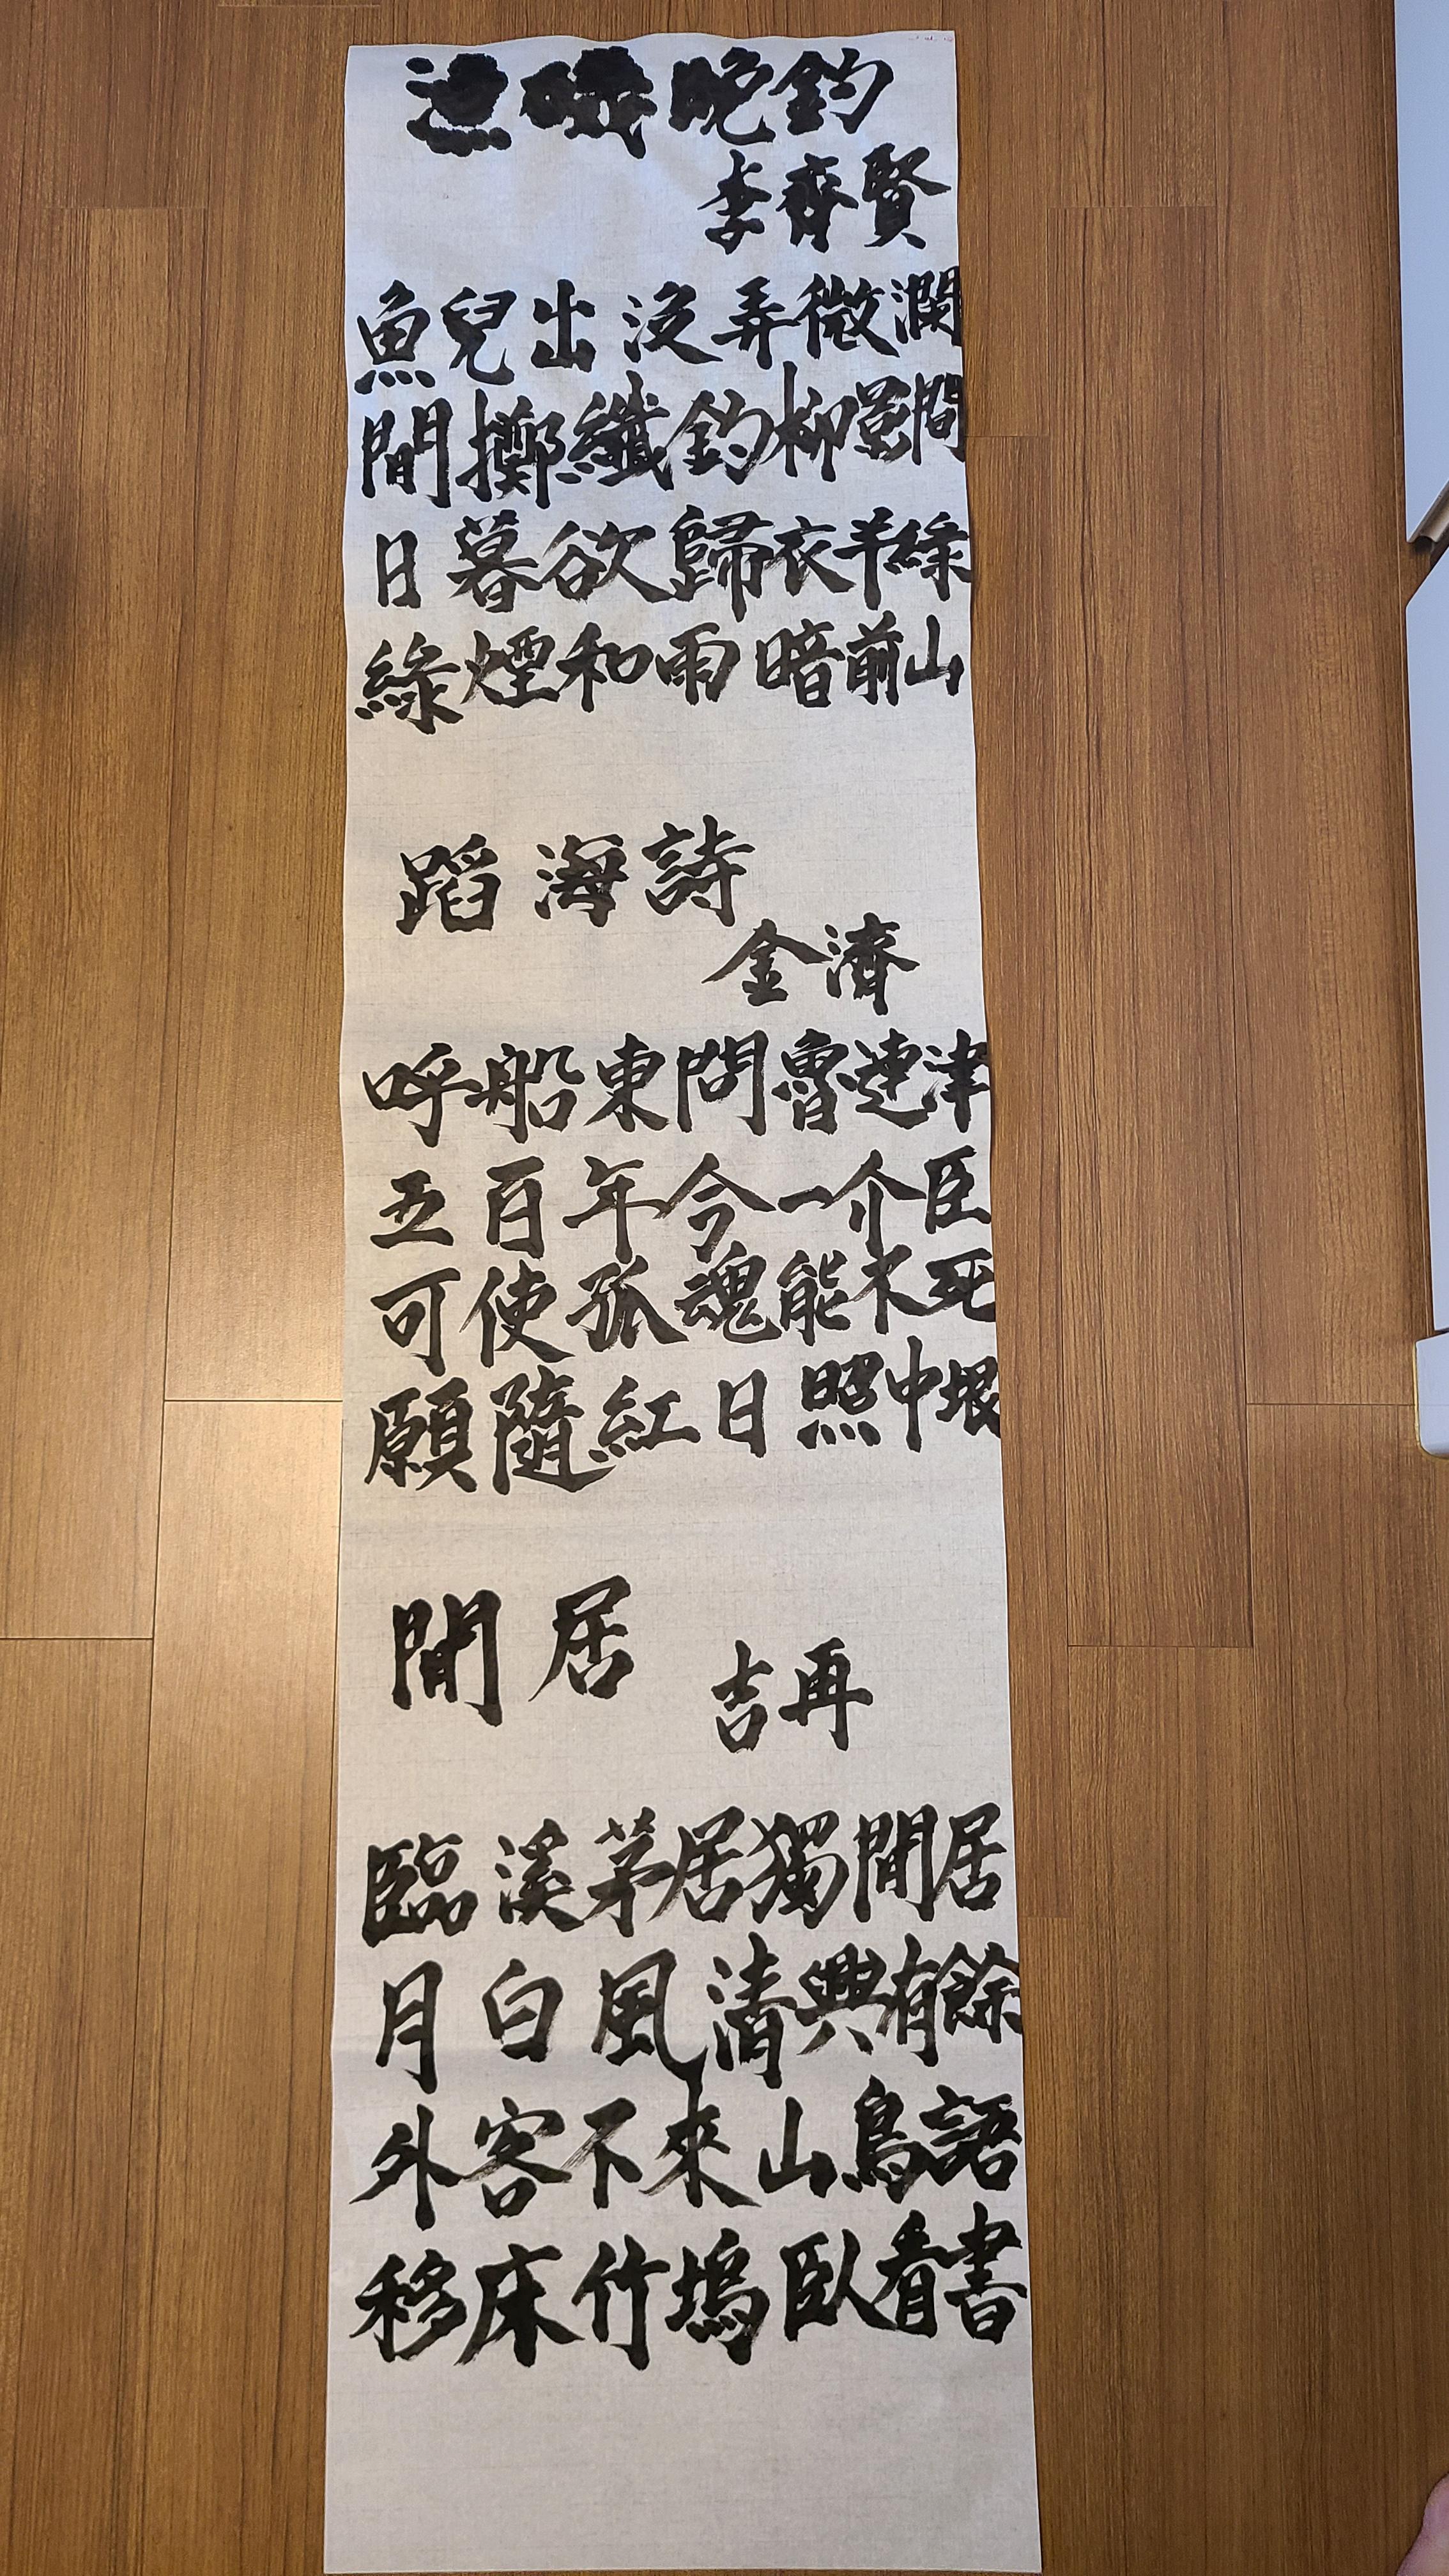 晚釣
李齊賢
魚兒出沒弄微瀾
閒擲纖釣柳影間
日暮欲歸衣半綠
綠煙和雨暗前山
蹈海詩
金濟
呼船東問魯連津
五百年今一介臣
可使孤魂能不死
願隨紅日照中垠
閒居
吉再
臨溪茅居獨閒居
月白風清興有餘
外客不來山鳥語
移床竹塢臥看書